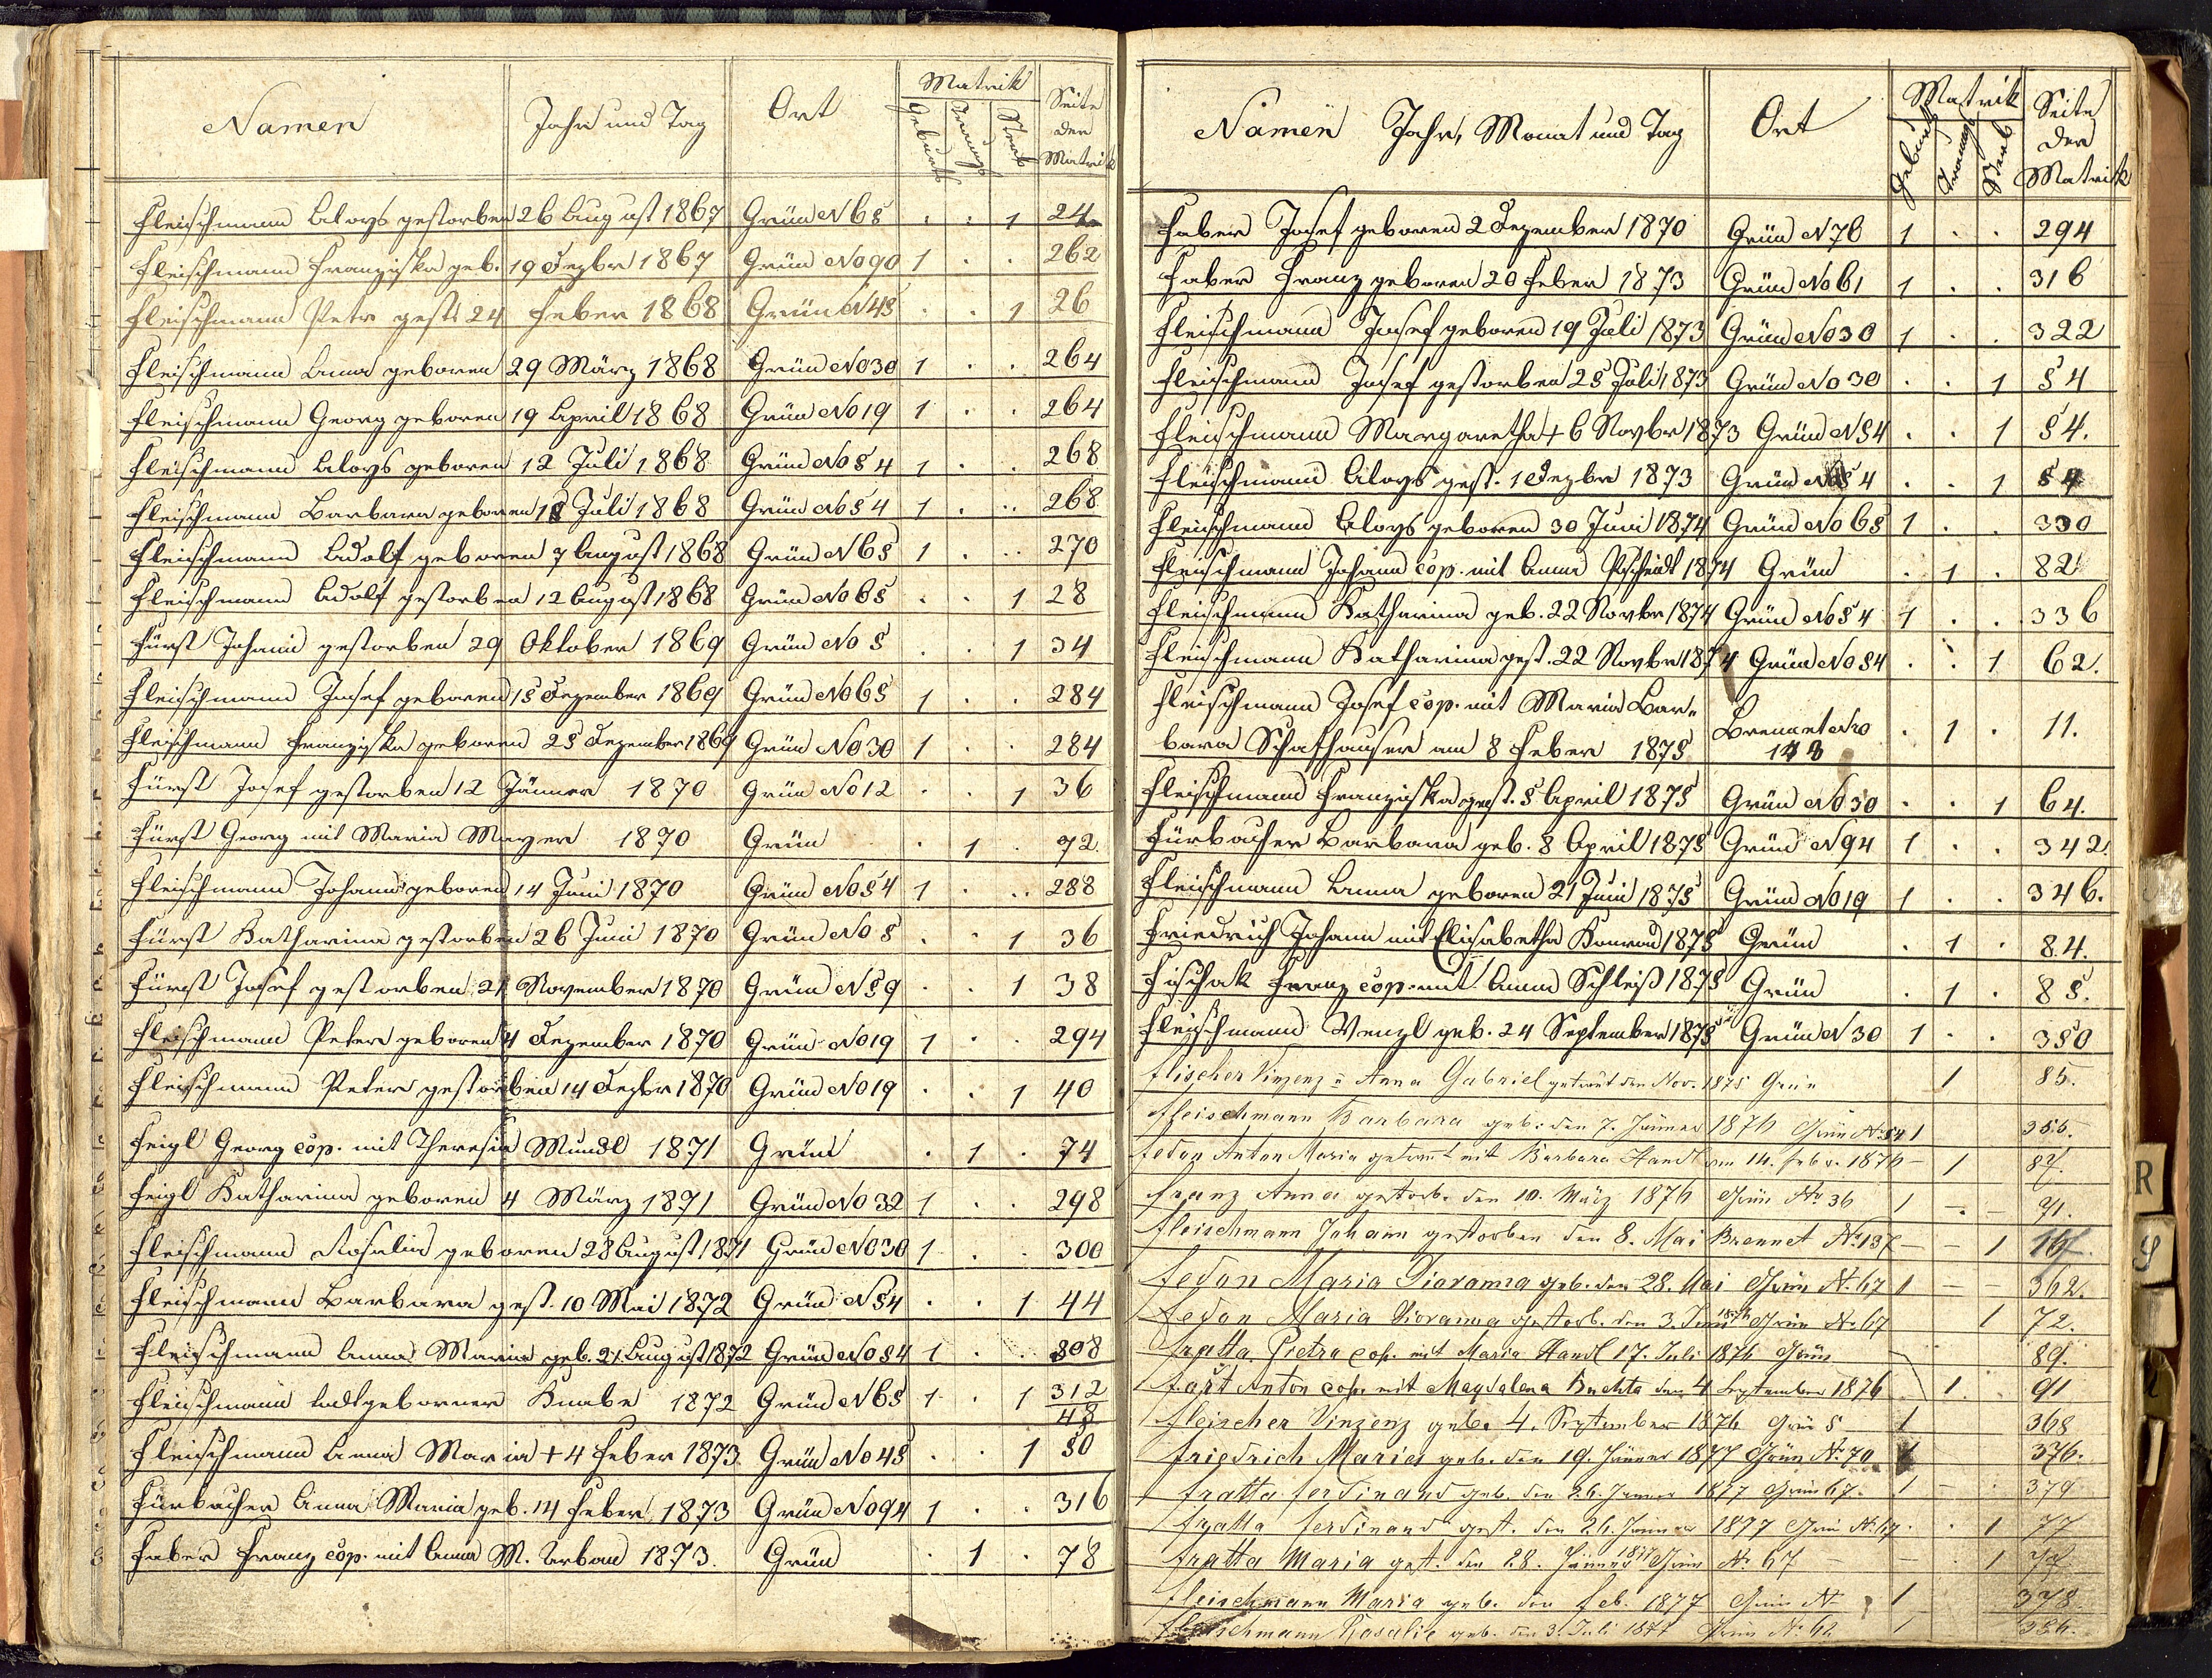 Namen Jahr und Tag Ort Matrik Seite der Matrik
Geburts Trauungs Sterb
Fleischmann Aloys gestorben 26 August 1867 Grün N 65 . . 1 24
Fleischmann Franziska geb. 19 Dezbr 1867 Grün No 90 1 . . 262
Fleischmann Petr gest. 24 Feber 1868 Grün N 45 . . 1 26
Fleischmann Anna geboren 29 März 1868 Grün No 30 1 . . 264
Fleischmann Georg geboren 19 April 1868 Grün No 19 1 . . 264
Fleischmann Aloys geboren 12 Juli 1868 Grün No 54 1 . . 268
Fleischmann Barbara geboren Juli 1868 Grün No 54 1 . . 268
Fleischmann Adolf geboren 7 August 1868 Grün N 65 1 . . 270
Fleischmann Adolf gestorben 12 August 1868 Grün No 65 . . 1 28
Fürst Johann gestorben 29 Oktober 1869 Grün No 5 . . 1 34
Fleischmann Josef geboren 15 Dezember 1869 Grün No 65 1 . . 284
Fleischmann Franziska geboren 25 Dezember 1869 Grün No 30 1 . . 284
Fürst Josef gestorben 12 Jänner 1870 Grün No 12 . . 1 36
Fürst Georg mit Maria Mayer 1870 Grün . 1 . 72
Fleischmann Johann geboren 14 Juni 1870 Grün No 54 1 . . 288
Fürst Katharina gestorben 26 Juni 1870 Grün No 5 . . 1 36
Fürst Josef gestorben 21 November 1870 Grün N 59 . . 1 38
Fleischmann Peter geboren 4 Dezember 1870 Grün No 19 1 . . 294
Fleischmann Peter gestorben 14 Dezbr 1870 Grün No 19 . . 1 40
Feigl Georg cop. mit Theresia Mundl 1871 Grün . 1 . 74
Feigl Katharina geboren 4 März 1871 Grün No 32 1 . . 298
Fleischmann Rosalia geboren 28 August 1871 Grün No 30 1 . . 300
Fleischmann Barbara gest. 10 Mai 1872 Grün N 54 . . 1 44
Fleischmann Anna Maria geb. 21 August 1872 Grün No 54 1 . . 308
Fleischmann todtgeborner Knabe 1872 Grün N 65 1 . 1 312
48
Fleischmann Anna Maria + 4 Feber 1873. Grün No 45 . . 1 50
Fürbacher Anna Maria geb. 14 Feber 1873 Grün No 94 1 . . 316
Faber Franz cop. mit Anna M. Urban 1873. Grün . 1 . 78
Namen Jahr, Monat und Tag Ort Matrik Seite der Matrik
Geburts Trauungs Sterb
Faber Josef geboren 2 Dezember 1870 Grün N 76 1 . . 294
Faber Franz geboren 20 Feber 1873 Grün No 61 1 . . 316
Fleischmann Josef geboren 19 Juli 1873 Grün No 30 1 . . 322
Fleischmann Josef gestorben 25 Juli 1873 Grün No 30 . . 1 54
Fleischmann Margaretha + 6 Novbr 1873 Grün N 54 . . 1 54.
Fleischmann Aloys gest. 1 Dezbr 1873 Grün 54 . . 1 54
Fleischmann Aloys geboren 30 Juni 1874 Grün No 65 1 . . 330
Fleischmann Johann cop. mit Anna 1874 Grün . 1 . 82
Fleischmann Katharina geb. 22 Novbr 1874 Grün No 54 1 . . 336
Fleischmann Katharina gest. 22 Novbr 1874 Grün No 54 . . 1 62.
Fleischmann Josef cop. mit Maria Bar-
bara Schafhauser am 8 Feber 1875 Brennet Nro . 1 . 11.
Fleischmann Franziska gest. 5 April 1875 Grün No 30 . . 1 64.
Fürbacher Barbara geb. 8 April 1875 Grün N 94 1 . . 342.
Fleischmann Anna geboren 21 Juni 1875 Grün No 19 1 . . 346.
Friedrich Johann mit Elisabetha Konrad 1875 Grün . 1 . 84.
Fischak Franz cop. mit Anna Schleiß 1875 Grün . 1 . 85.
Fleischmann Wenzl geb. 24 September 1875 Grün N 30 1 . . 350
Flischer Vinzenz u Anna Gabriel getraut den Nov. 1875 Grün 1 85.
Fleischmann Barbara geb. den 7. Jänner 1876 Grün N. 54 1 355.
Fedon Anton Maria getraut mit Barbara Handl am 14. Febr. 1876 - 1 87.
Franz Anna gestorb. den 10. März 1876 Grün No 36 1 - - 71.
Fleischmann Johann gestorben den 8. Mai Brennet N. 137 - - 1
Fedon Maria Giovanna geb. den 28. Mai Grün N. 67 1 - - 362.
Fedon Maria Giovanna gestorb. den 3. Juni 1876 Grün No 67 1 72.
Fratta Pietro cop. mit Maria Handl 17. Juli 1876 Grün 89.
Fašt Anton cop. mit Magdalena Buchta den 4 September 1876 1 . 91
Fleischer Vinzenz geb. 4. September 1876 Grün 5 1 368
Friedrich Maria geb. den 19. Jänner 1877 Grün N. 70 1 376.
Fratta Ferdinand geb. den 26. Jänner 1877 Grün 67. 1 - . 379
Fratta Ferdinand gest. den 26. Jänner 1877 Grün N. 67 . . 1 77
Fratta Maria gest. den 28. Jänner 1877 Grün No 67 - 1 77
Fleischmann Maria geb. den Feb. 1877 Grün N 1 378
Fleischmann Rosalie geb. den 3. Juli 1877 Grün N. 62 1 386.
R
S